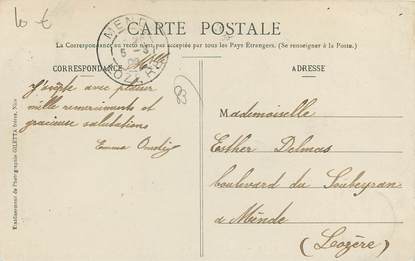 10 €
CARTE POSTALE
La Correspondance au recto n'est pas acceptée par tous les Pays Étrangers. (Se renseigner à la Poste.)
MENDE
LOZÈRE
CORRESPONDANCE
ADRESSE
J'accepte avec plaisir
mille remerciements et
gracieuse salutations
Emma
Mademoiselle
Esther Delmas
boulevard du Soubeyran
à Mende
(Lozère)
Etablissement de Photographie GILETTA frères, Nice